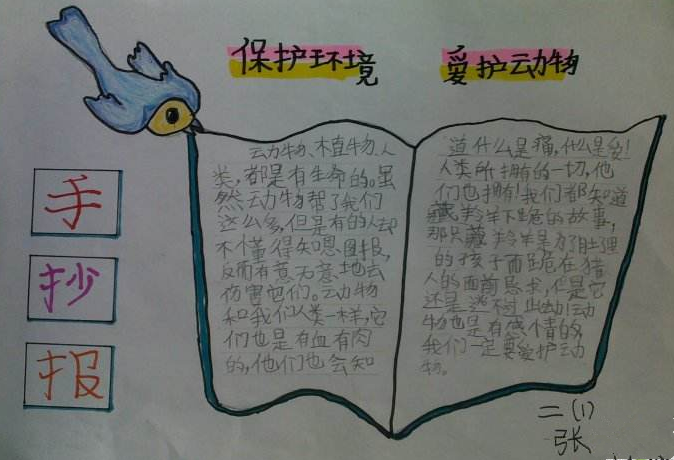 保护环境
爱护动物
手
抄
报
动物、植物、人
类,都是有生命的。虽
然动物帮了我们
这么多,但是有的人却
不懂得知恩图报,
反而有意无意地去
伤害它们。动物
和我们人类一样,它
们也是有血有肉
的,他们也会知
道什么是痛,什么是爱!
人类所拥有的一切,他
们也拥有!我们都知道
藏羚羊下跪的故事,
那只藏羚羊是为了肚里
的孩子而跪在猎
人的面前恳求,但是它
还是逃不过此劫!动
物也是有感情的,
我们一定要爱护动
物。
二(1)
张